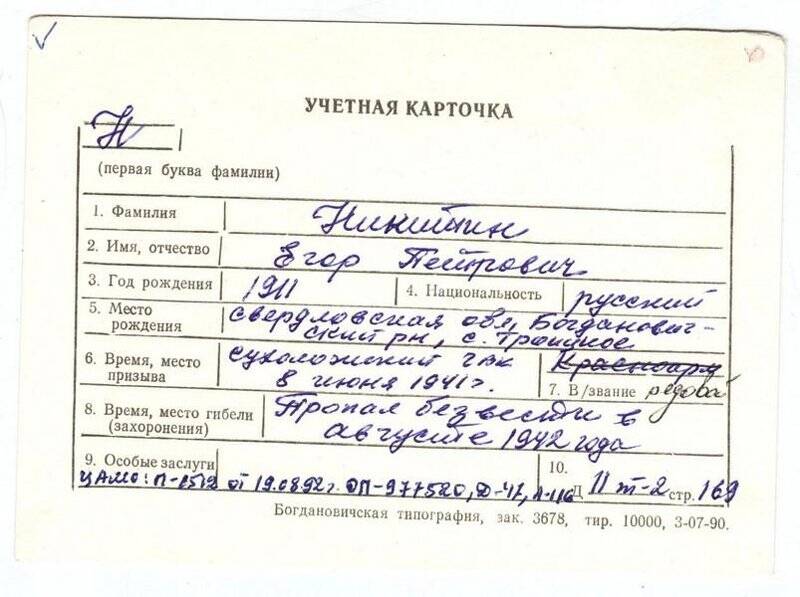 УЧЕТНАЯ КАРТОЧКА
Н
(первая буква фамилии)
1. Фамилия Никитин
2. Имя, отчество Егор Петрович
3. Год рождения 1911 4. Национальность русский
5. Место рождения Свердловская обл, Богданович-
ский рн, с. Троицкое
6. Время, место призыва Сухоложский гвк
8 июня 1941г.
Красноарм
7. В/звание рядовой
8. Время, место гибели (захоронения) Пропал без вести в
августе 1942 года
9. Особые заслуги 10.
ЦАМО: П-1512 от 19.08.92г. ОП-977520, Д-47, Л-116 Д II т-2 стр. 169
Богдановичская типография, зак. 3678, тир. 10000, 3-07-90.